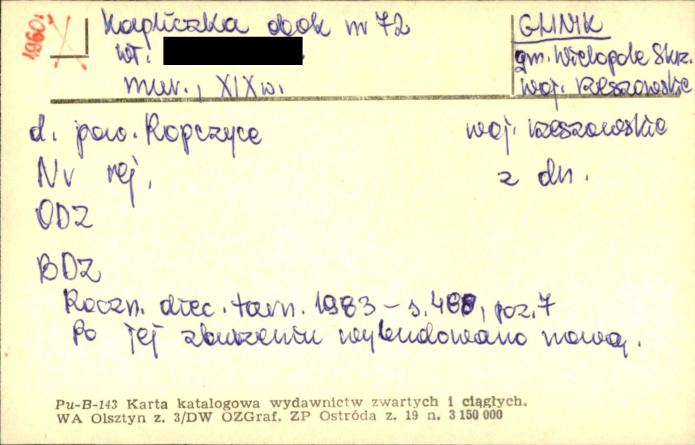 1960.
Kapliczka obok nr 72
GLINIK
wł.
gm. Wielopole Skrz.
mur., XIX w.
woj. rzeszowskie
d. pow. Ropczyce
woj. rzeszowskie
Nr rej.
z dn.
ODZ
BDZ
Roczn. diec. tarn. 1983 - s. 488, poz. 7
Po jej zburzeniu wybudowano nową.
Pu-B-143 Karta katalogowa wydawnictw zwartych i ciągłych.
WA Olsztyn z. 3/DW OZGraf. ZP Ostróda z. 19 n. 3 150 000